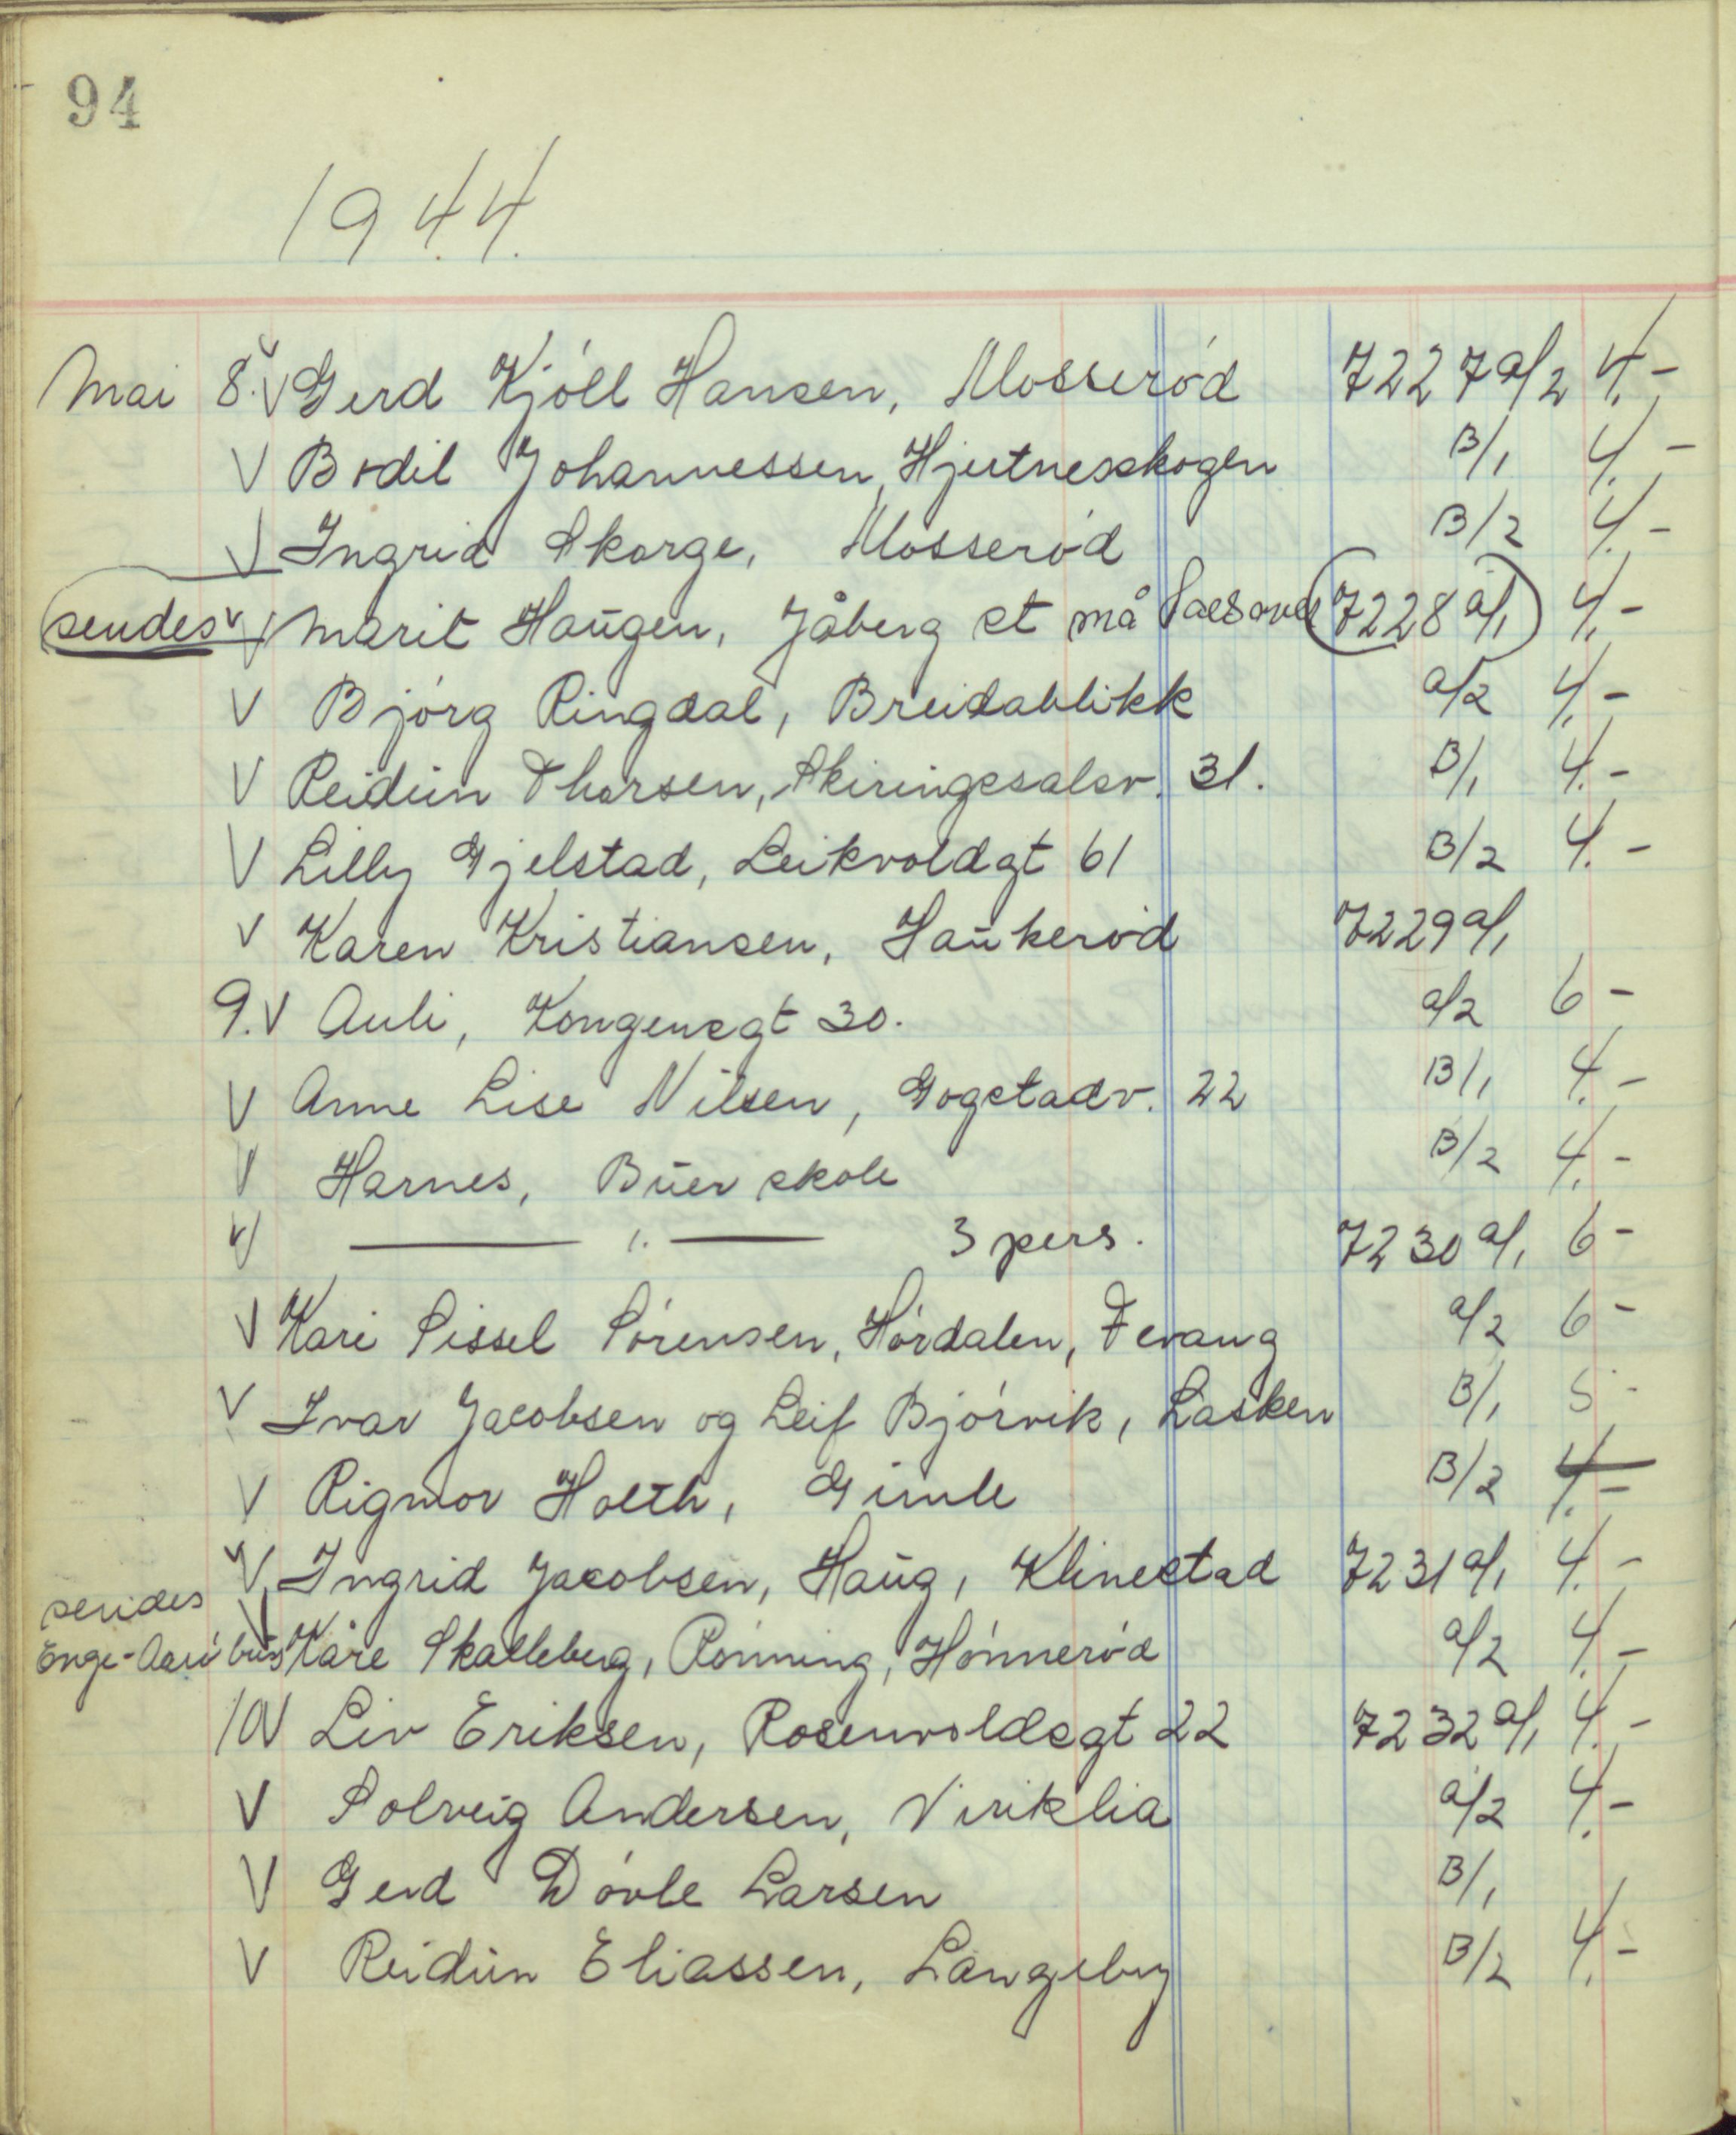 94
1944.
Mai 8. V Gerd Kjöll Hansen, Mosseröd 7227 a/2 4.-
V Bodil Johannessen, Hjertnesskogen B/1 4.-
V Ingrid Skorge, Mosseröd B/2 4.-
sendes V Marit Haugen, Jåberg st må 7228 a/1 4.-
V Björg Ringdal, Breidablikk a/2 4.-
V Reidun Thorsen, Skiringssalsv. 31. B/1 4.-
V Lilly Gjelstad, Leikvoldgt 61 B/2 4.-
V Karen Kristiansen, Haukeröd 7229 a/1
9. V Auli, Kongensgt 30. a/2 6-
V Anne Lise Nilsen, Gogstadv. 22 B/1 4.-
V Harnes, Buer skole B/2 4.-
V — " — 3 pers. 7230 a/1 6-
V Kari Sissel Sörensen, Hördalen, Fevang a/2 6-
V Ivar Jacobsen og Leif Björvik, Lasken B/1 5-
V Rigmor Holth, Gimle B/2 4.-
V Ingrid Jacobsen, Haug, Klinestad 7231 a/1 4.-
sendes
V Kåre Skalleberg, Rönning, Hönneröd a/2 4.-
10 V Liv Eriksen, Rosenvoldsgt 22 7232 a/1 4.-
V Solveig Andersen, Viriklia a/2 4.-
V Gerd Dövle Larsen B/1
V Reidun Eliassen, Langeby B/2 4.-